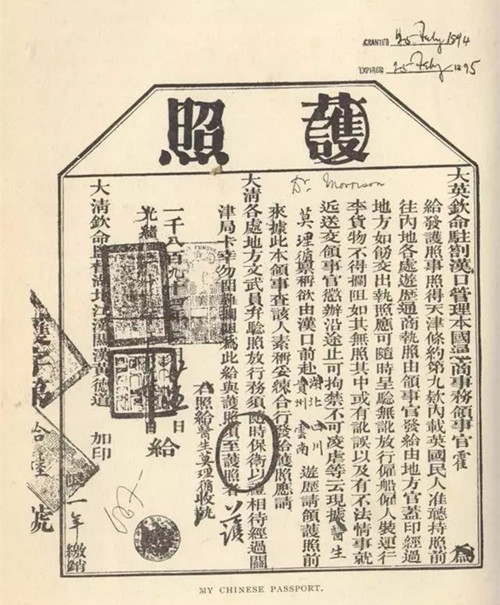 GRANTED 25 Feby 1894
EXPIRED 25 Feby 1895
護照
Dr. Morrison
大英欽命駐劄漢口管理本國通商事務領事官霍 為
給發護照事照得天津條約第九款內載英國民人准聽持照前
往內地各處遊歷通商執照由領事官發給由地方官蓋印經過
地方如飭交出執照應可隨時呈驗無訛放行僱船僱人裝運行
李貨物不得攔阻如其無照其中或有訛誤以及有不法情事就
近送交領事官懲辦沿途止可拘禁不可凌虐等云現據醫生
莫理循稟稱欲由漢口前赴湖北四川貴州雲南遊歷請領護照前
來據此本領事查該人素稱妥練合行發給護照應請
大清各處地方文武員弁驗照放行務須隨時保衛以禮相待經過關
津局卡幸勿留難攔阻為此給與護照須至護照者
護
右照給醫生莫理循收執
一千八百九十四年 日
光緒 日給
大清欽命監督湖北江漢關漢黃德道 加印
限一年繳銷
護字第 號
MY CHINESE PASSPORT.